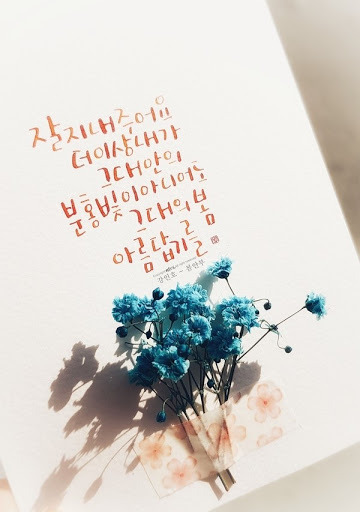 잘지내주어요
더이상내가
그대안의
분홍빛이아니어도
그대의봄
아름답기를
강인호 - 봄안부